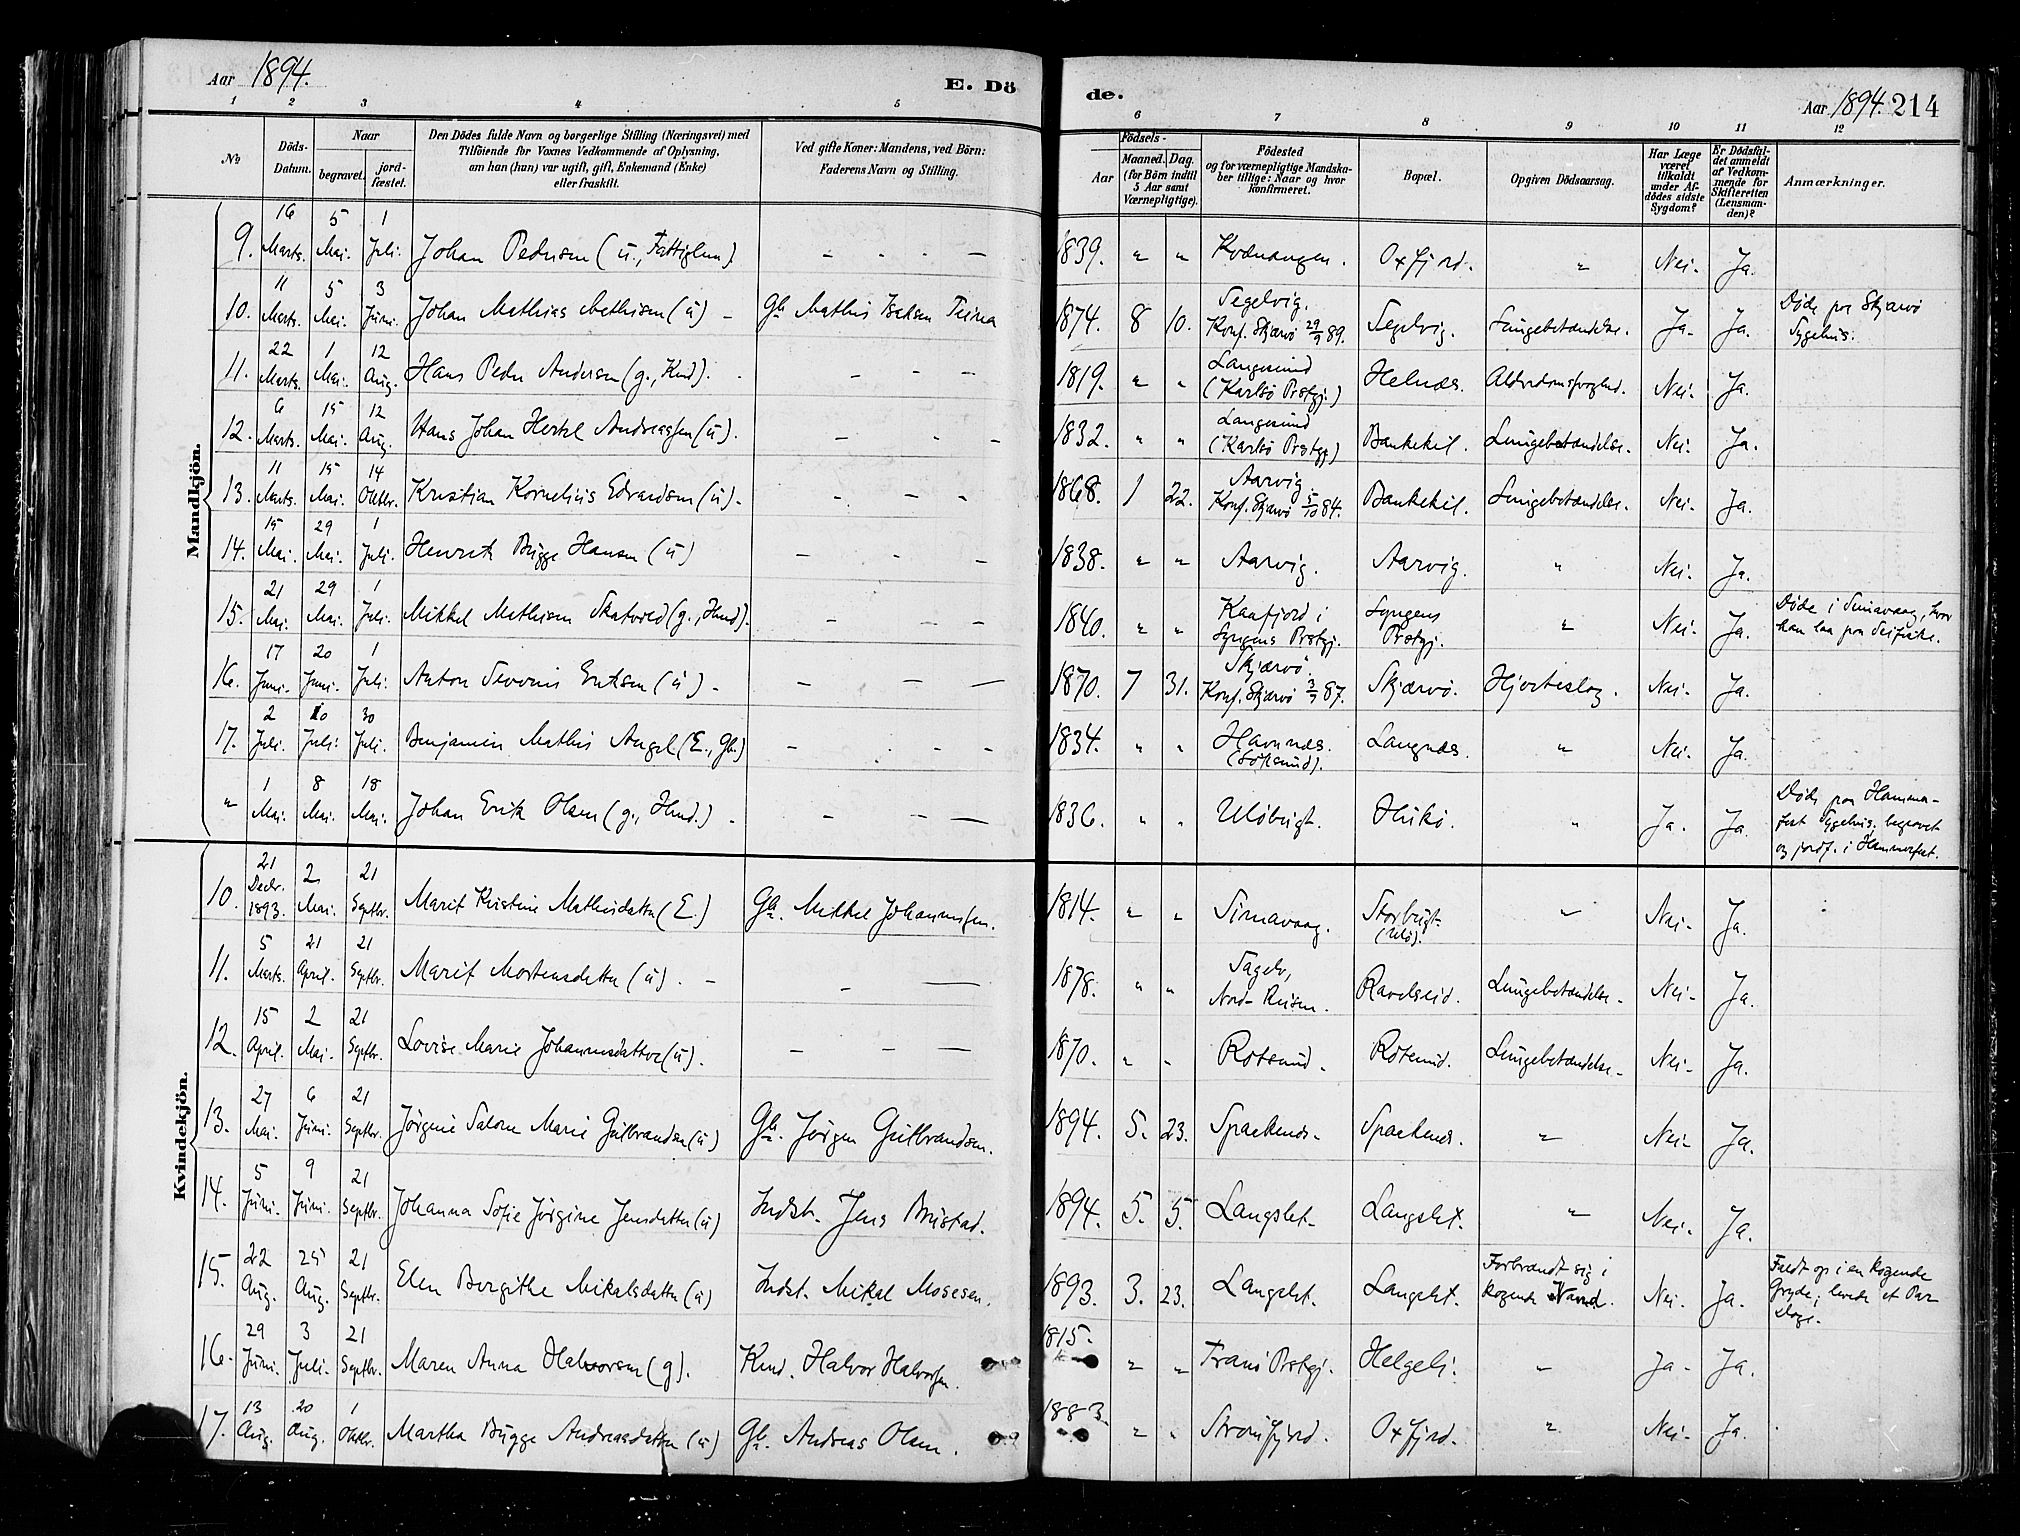 Aar 1894.
E. Dö
de.
Aar 1894. 214
1 2 3 4 5 6 7 8 9 10 11 12
No
Döds-Datum.
Naar
begravet.
jordfæstet.
Den Dödes fulde Navn og borgerlige Stilling (Næringsvei) med
Tilföiende for Voxnes Vedkommende af Oplysning,
om han (hun) var ugift, gift, Enkemand (Enke)
eller fraskilt.
Ved gifte Koner: Mandens, ved Börn:
Faderens Navn og Stilling.
Födsels-
Aar
Maaned. Dag.
(for Börn indtil
5 Aar samt
Værnepligtige).
Födested
og for værnepligtige Mandskaber tillige: Naar og hvor
konfirmeret.
Bopæl.
Opgiven Dödsaarsag.
Har Læge
været
tilkaldt
under Afdödes sidste
Sygdom?
Er Dödsfaldet anmeldt
af Vedkommende for
Skifteretten
(Lensmanden)?
Anmærkninger.
Mandkjön.
9. 16 Marts. 5 Mai. 1 Juli. Johan Pedersen (u., Fattiglem) 1839. " " Kvænangen. Oxfjord. " Nei. Ja.
10. 11 Marts. 5 Mai. 3 Juni. Johan Mathias Mathisen (u) Gb Mathis Isaksen 1874. 8 10. Segelvig. Konf. Skjærvö 29/9 89. Segelvig. Lungebetændelse. Ja. Ja. Døde paa Skjærvö Sygehus.
11. 22 Marts. 1 Mai. 12 Aug. Hans Peder Andersen (g., Kmd). 1819. " " Langesund (Karlsö Prstgj.) Helnæs. Alderdomssvaghed. Nei. Ja.
12. 6 Marts. 15 Mai. 12 Aug. Hans Johan Hertel Andreassen (u). 1832. " " Langesund (Karlsö Prstgj) Bankekil. Lungebetændelse. Nei. Ja.
13. 11 Marts. 15 Mai. 14 Oktbr. Kristian Kornelius Edvardsen (u). 1868. 1 22. Aarvig. Konf. Skjærvö 5/10 84. Bankekil. Lungebetændelse. Nei. Ja.
14. 15 Mai. 29 Mai. 1 Juli. Henrik Bugge Hansen (u) 1838. " " Aarvig. Aarvig. " Nei. Ja.
15. 21 Mai. 29 Mai. 1 Juli. Mikkel Mathisen Skatvold (g., Hmd). 1840. " " Kaafjord i Lyngens Prstgj. Lyngens Prstgj. " Nei. Ja. Døde i Simavaag, hvor han laa paa Seifiske.
16. 17 Juni. 20 Juni. 1 Juli. Anton Severin Eriksen (u). 1870. 7 31. Skjærvö. Konf. Skjærvö 3/9 87. Skjærvö. Hjerteslag. Nei. Ja.
17. 2 Juli. 10 Juli. 30 Juli. Benjamin Mathis Angel (E., Gb.) 1834. " " Havnnæs. Langnæs. " Nei. Ja.
" 1 Mai. 8 Mai. 18 Mai. Johan Erik Olsen (g., Hmd.) 1836. " " Ulöbugt. Hukö. " Ja. Ja. Døde paa Hammerfest Sygehus; begravet og jordf. i Hammerfest.
Kvindekjön.
10. 21 Decbr. 1893. 2 Mai. 21 Septbr. Marit Kristine Mathisdatter (E.) Gb. Mikkel Johannessen. 1814. " " Simavaag. Storbugt. (Ulö). " Nei. Ja.
11. 5 Marts. 21 April. 21 Septbr. Marit Mortensdatter (u). 1878. " " Sagelv, Nord-Reisen. Ravelseid. Lungebetændelse. Nei. Ja.
12. 15 April. 2 Mai. 21 Septbr. Lovise Marie Johannesdatter (u). 1870. " " Rotsund. Rotsund. Lungebetændelse. Nei. Ja.
13. 27 Mai. 6 Juni. 21 Septbr. Jørgine Salome Marie Gulbrandsen (u) Gb. Jørgen Gulbrandsen. 1894. 5. 23. Spaakenæs. Spaakenæs. " Nei. Ja.
14. 5 Juni. 9 Juni. 21 Septbr. Johanna Sofie Jørgine Jensdatter (u) Indst. Jens Brustad. 1894. 5. 5. Langslet. Langslet. " Nei. Ja.
15. 22 Aug. 25 Aug. 21 Septbr. Elen Bergithe Mikalsdatter (u) Indst. Mikal Mosesen. 1893. 3. 23. Langslet. Langslet. Forbrændt sig i kogende Vand. Nei. Ja. Faldt op i en kogende Gryde; levede et Par Dage.
16. 29 Juni. 3 Juli. 21 Septbr. Maren Anna Halvorsen (g). Kmd. Halvor Halvorsen. 1815. " " Tranö Prstgj. Helgeli. " Ja. Ja.
17. 13 Aug. 20 Aug. 1 Oktbr. Martha Bugge Andreasdatter (u) Gb. Andreas Olsen. 1883. " " Straumfjord. Oxfjord. " Nei. Ja.